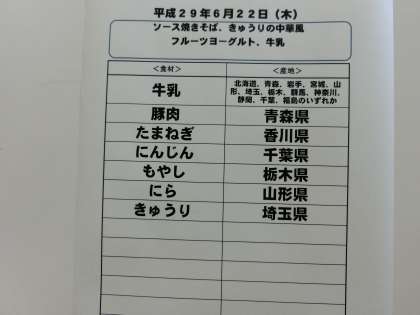 平成２９年６月２２日（木）
ソース焼きそば、きゅうりの中華風
フルーツヨーグルト、牛乳
＜食材＞ ＜産地＞
牛乳 北海道、青森、岩手、宮城、山
形、埼玉、栃木、群馬、神奈川、
静岡、千葉、福島のいずれか
豚肉 青森県
たまねぎ 香川県
にんじん 千葉県
もやし 栃木県
にら 山形県
きゅうり 埼玉県